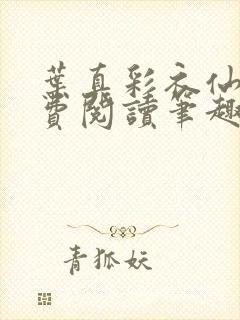 葉真彩衣仙
費閱讀筆趣
青狐妖